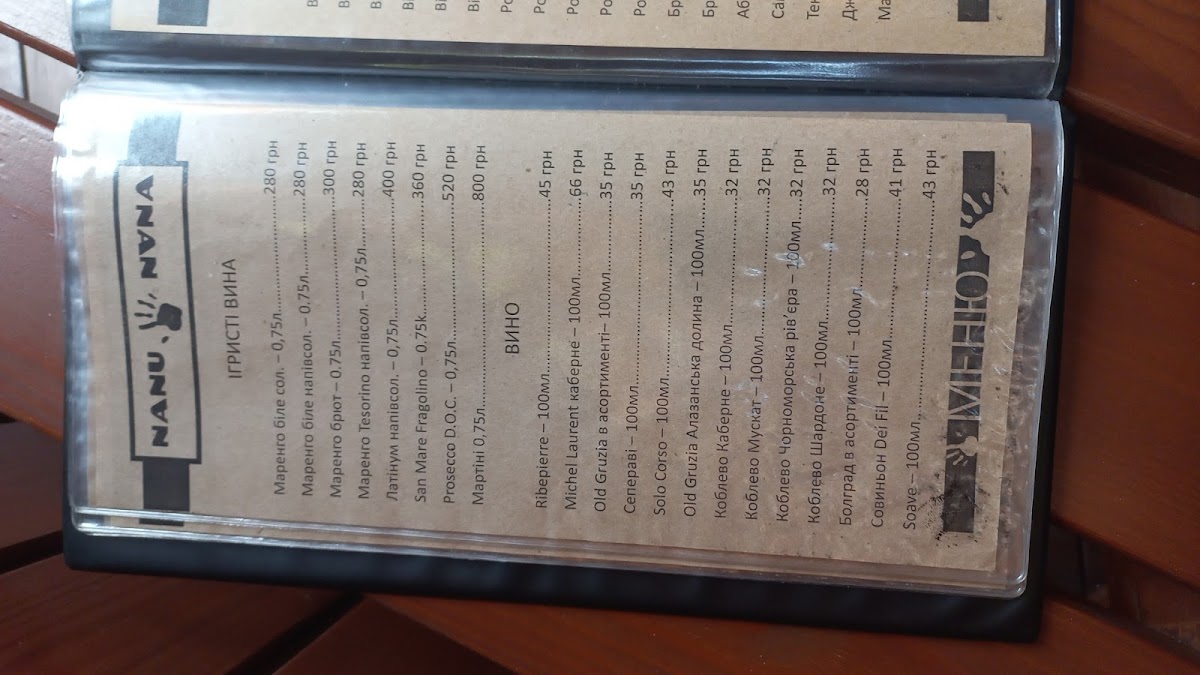 NANU NANA
ІГРИСТІ ВИНА
Маренго біле сол. – 0,75л.......................280 грн
Маренго біле напівсол. – 0,75л...............280 грн
Маренго брют – 0.75л............................300 грн
Маренго Tesorino напівсол. – 0,75л.........280 грн
Латінум напівсол. – 0,75л........................400 грн
San Mare Fragolino – 0.75k.......................360 грн
Prosecco D.O.C. – 0,75л...........................520 грн
Мартіні 0,75л..........................................800 грн
ВИНО
Ribepierre – 100мл...................................45 грн
Michel Laurent каберне – 100мл...............66 грн
Old Gruzia в асортименті– 100мл..............35 грн
Сепераві – 100мл.....................................35 грн
Solo Corso – 100мл...................................43 грн
Old Gruzia Алазанська долина – 100мл.....35 грн
Коблево Каберне – 100мл........................32 грн
Коблево Мускат – 100мл..........................32 грн
Коблево Чорноморська рів’єра – 100мл...32 грн
Коблево Шардоне – 100мл.......................32 грн
Болград в асортименті – 100мл................28 грн
Совиньон Dei Fil – 100мл..........................41 грн
Soave – 100мл..........................................43 грн
МЕНЮ